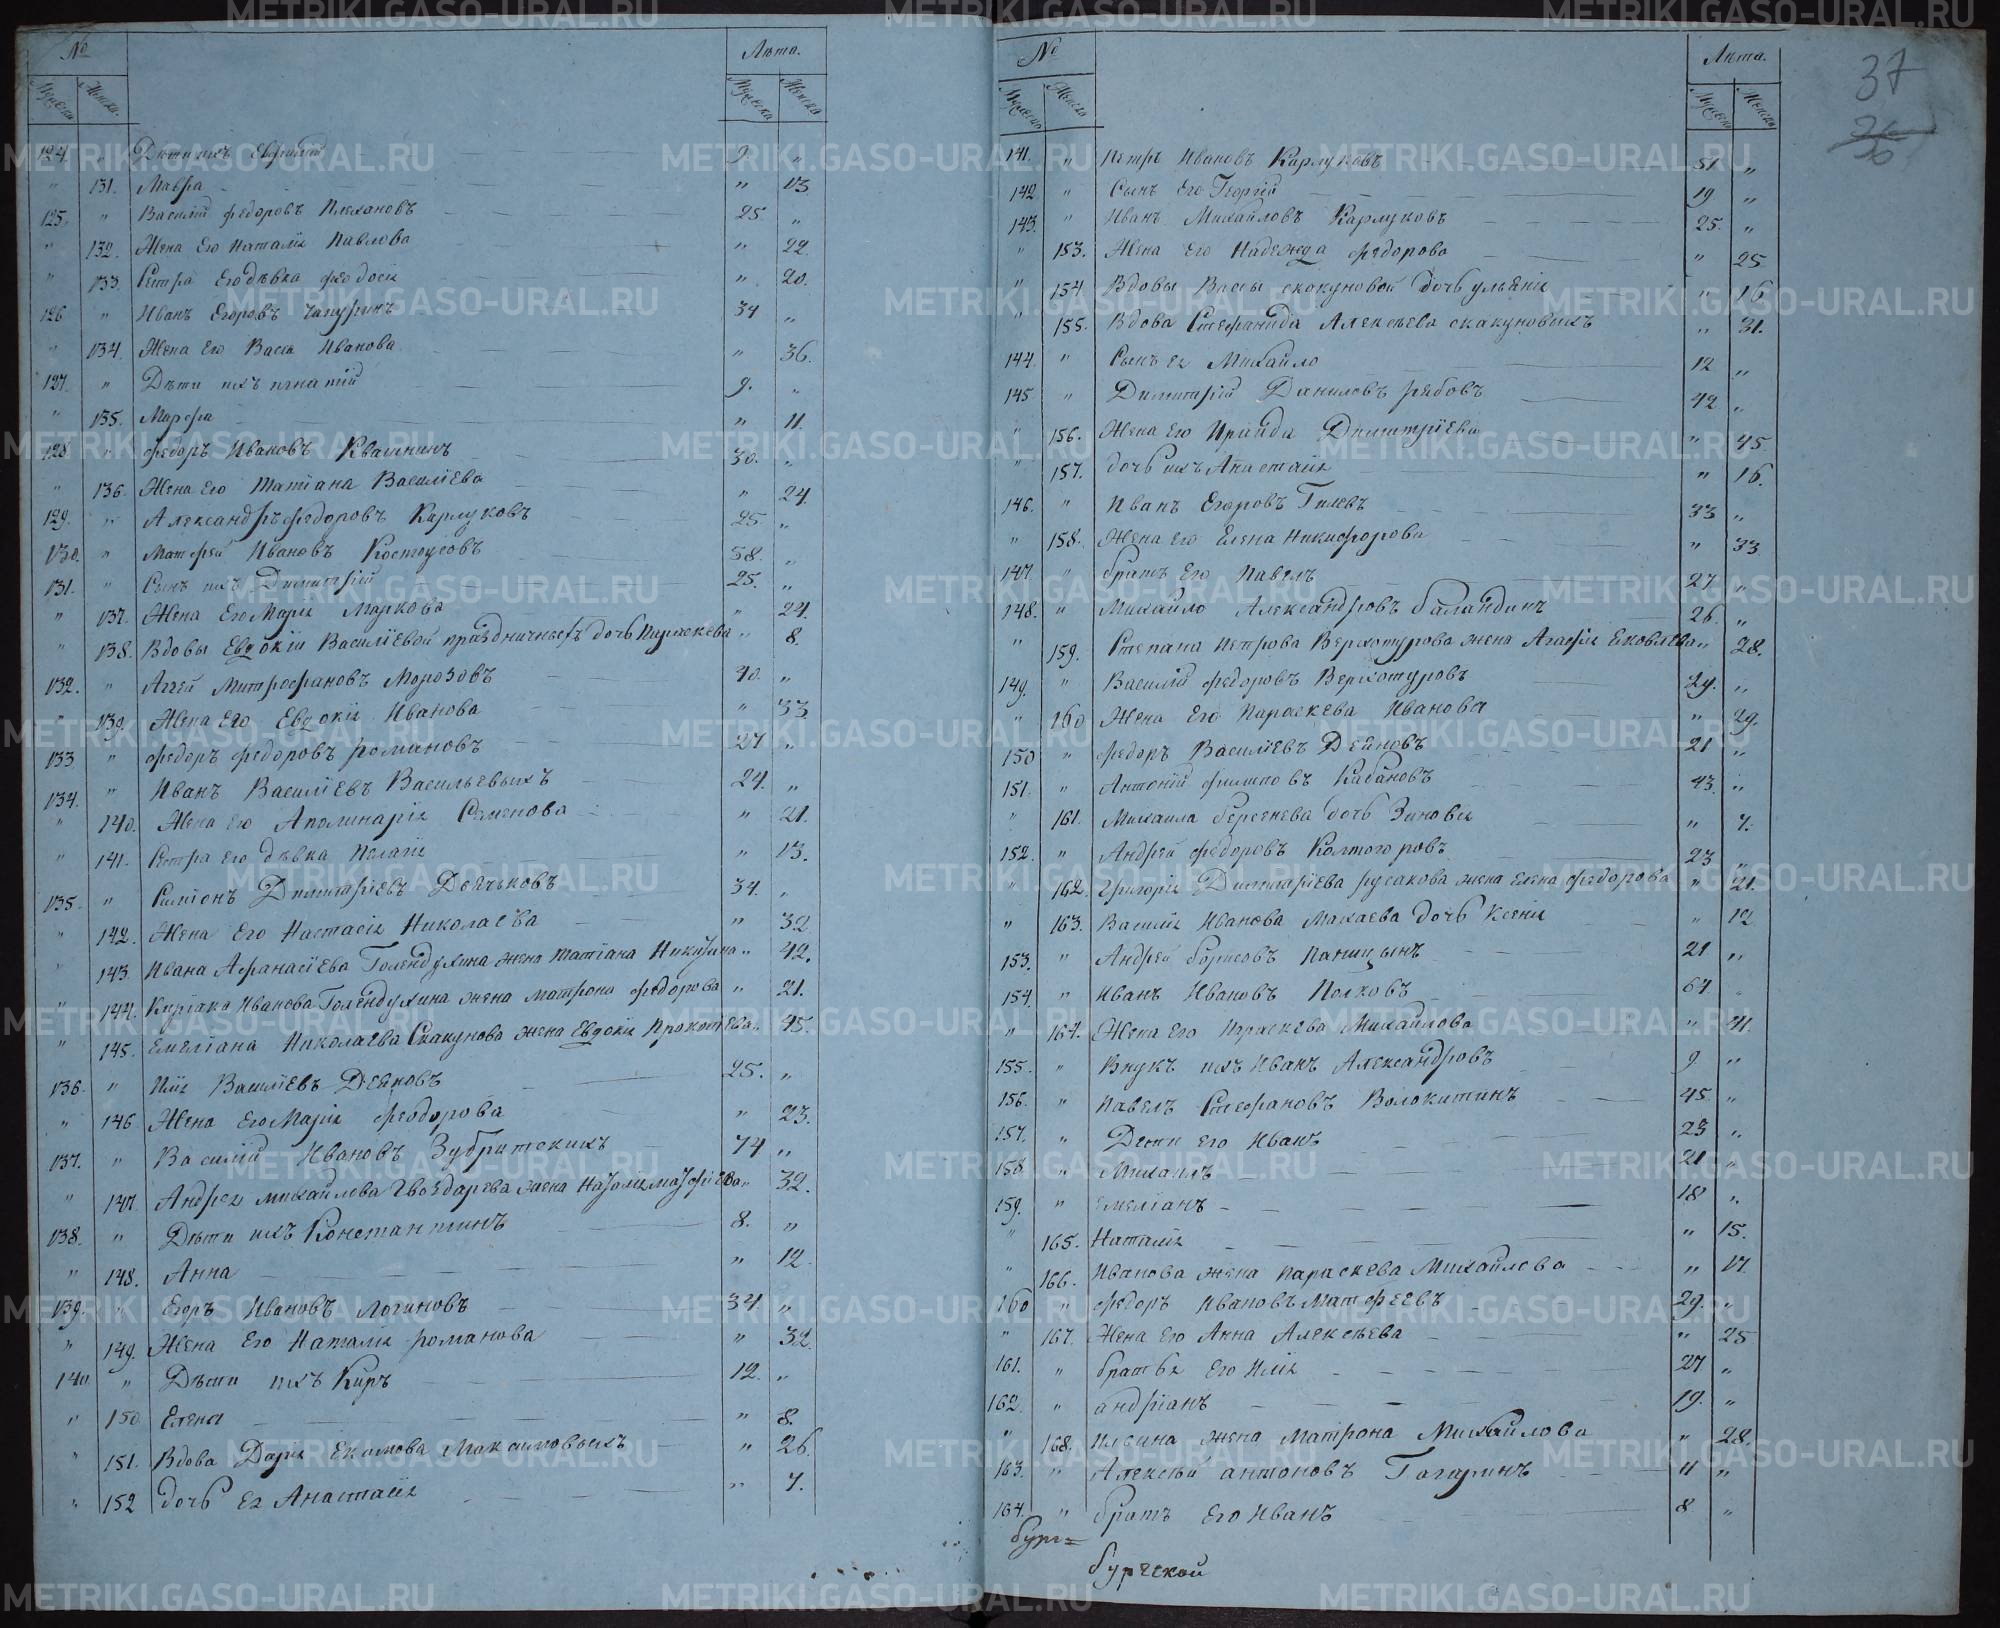 № Лѣта.
Мужеска Женска. Мужеска Женска
124. " Дѣти ихъ Евфимий 9. "
" 131. Мавра " 13
125. " Василий Федоровъ Плехановъ 25. "
" 132. Жена Его Наталія Павлова " 22.
" 133. Сестра Его дѣвка Феодосія " 20.
126 " Иванъ Егоровъ 34 "
" 134. Жена Его Васса Иванова " 36.
127. " Дѣти ихъ Игнатій 9. "
" 135. Марфа " 11.
128 " Федоръ Ивановъ Квашнинъ 30. "
" 136. Жена Его Татіана Василіева " 24.
129. " Александръ Федоровъ Карлуковъ 25 "
130. " Матфей Ивановъ Костоусовъ 58. "
131. " Сынъ ихъ Димитрій 25. "
" 137. Жена Его Марія Маркова " 24.
" 138. Вдовы Евдокіи Василіевой Праздничныхъ дочь Параскева " 8.
132. " Аггей Митрофановъ Морозовъ 40. "
" 139. Жена Его Евдокія Иванова " 33
133 " Федоръ Федоровъ Романовъ 27 "
134. " Иванъ Василіевъ Васильевыхъ 24. "
" 140. Жена Его Аполинарія Семенова " 21.
" 141. Сестра его дѣвка Пелагія " 13.
135. " Симіонъ Димитріевъ Деячьковъ 34. "
" 142. Жена Его Настасія Николаева " 32
" 143. Ивана Афанасіева Голендухина жена Татіана Никитина " 42.
" 144. Киріака Иванова Голендухина жена Матрона Федорова " 21.
" 145. Емеліана Николаева Скакунова жена Евдокія Прокопіева " 45.
136. " Илія Василіевъ Деяновъ 25. "
" 146 Жена Его Марія Феодорова " 23.
137. " Василий Ивановъ Зубритскихъ 74 "
" 147. Андрея Михайлова Гвоздарева жена Наталія Матфіева " 32.
138. " Дѣти ихъ Константинъ 8. "
" 148. Анна " 12.
139. " Егоръ Ивановъ Логиновъ 34. "
" 149. Жена Его Наталія Романова " 32.
140 " Дѣти ихъ Киръ 12. "
" 150. Елена " 8.
" 151. Вдова Дарія Екимова Максимовыхъ " 26.
" 152 дочь Ея Анастасія " 7.
№ Лѣта.
Мужеска Женска Мужеска Женска
37
36
141. " Петръ Ивановъ Карлуковъ 51 "
142 " Сынъ Его Георгій 19 "
143. " Иванъ Михайловъ Карлуковъ 25. "
" 153. Жена Его Надежда Федорова " 25
" 154 Вдовы Вассы Скакуновой дочь Ульянія " 16
" 155. Вдова Стефанида Алексѣева Скакуновыхъ " 31.
144 " Сынъ ея Михайло 12 "
145 " Димитрій Даниловъ Рябовъ 42 "
" 156. Жена Его Ираида Димитріева " 45
" 157. дочь ихъ Анастасія " 16.
146. " Иванъ Егоровъ Гилевъ 33 "
" 158. Жена Его Елена Никифорова " 33
147. " братъ Его Павелъ 27 "
148. " Михайло Александровъ Баландинъ 26. "
" 159. Степана Петрова Верхотурова жена Агафія Яковлева " 28.
149. " Василий Федоровъ Верхотуровъ 29. "
" 160 Жена Его Параскева Иванова " 29.
150 " Федоръ Василіевъ Деяновъ 21 "
151. " Антоній Филиповъ Кабановъ 43. "
" 161. Михаила Берсенева дочь Зиновія " 7.
152. " Андрей Федоровъ Колтогоровъ 23 "
" 162. Григорія Димитріева Русакова жена Елена Федорова " 21.
" 163. Василія Иванова Макаева дочь Ксенія " 12
153. " Андрей Борисовъ Паницынъ 21 "
154. " Иванъ Ивановъ Полковъ 64 "
" 164. Жена Его Параскева Михайлова " 41.
155. " Внукъ ихъ Иванъ Александровъ 9 "
156. " Павелъ Стефановъ Волокитинъ 45. "
157. " Дети Его Иванъ 23 "
158. " Михаилъ 21 "
159. " Емеліанъ 18 "
" 165. Наталія " 15.
" 166. Иванова жена Параскева Михайлова " 17.
160 " Федоръ Ивановъ Матфеевъ 29. "
" 167. Жена Его Анна Алексѣева " 25
161. " братья Его Илія 27 "
162. " Андріанъ 19. "
" 168. Ильина жена Матрона Михайлова " 28.
163. " Алексѣй Антоновъ Гагаринъ 11 "
164. " братъ Его Иванъ 8 "
бург=
бургской